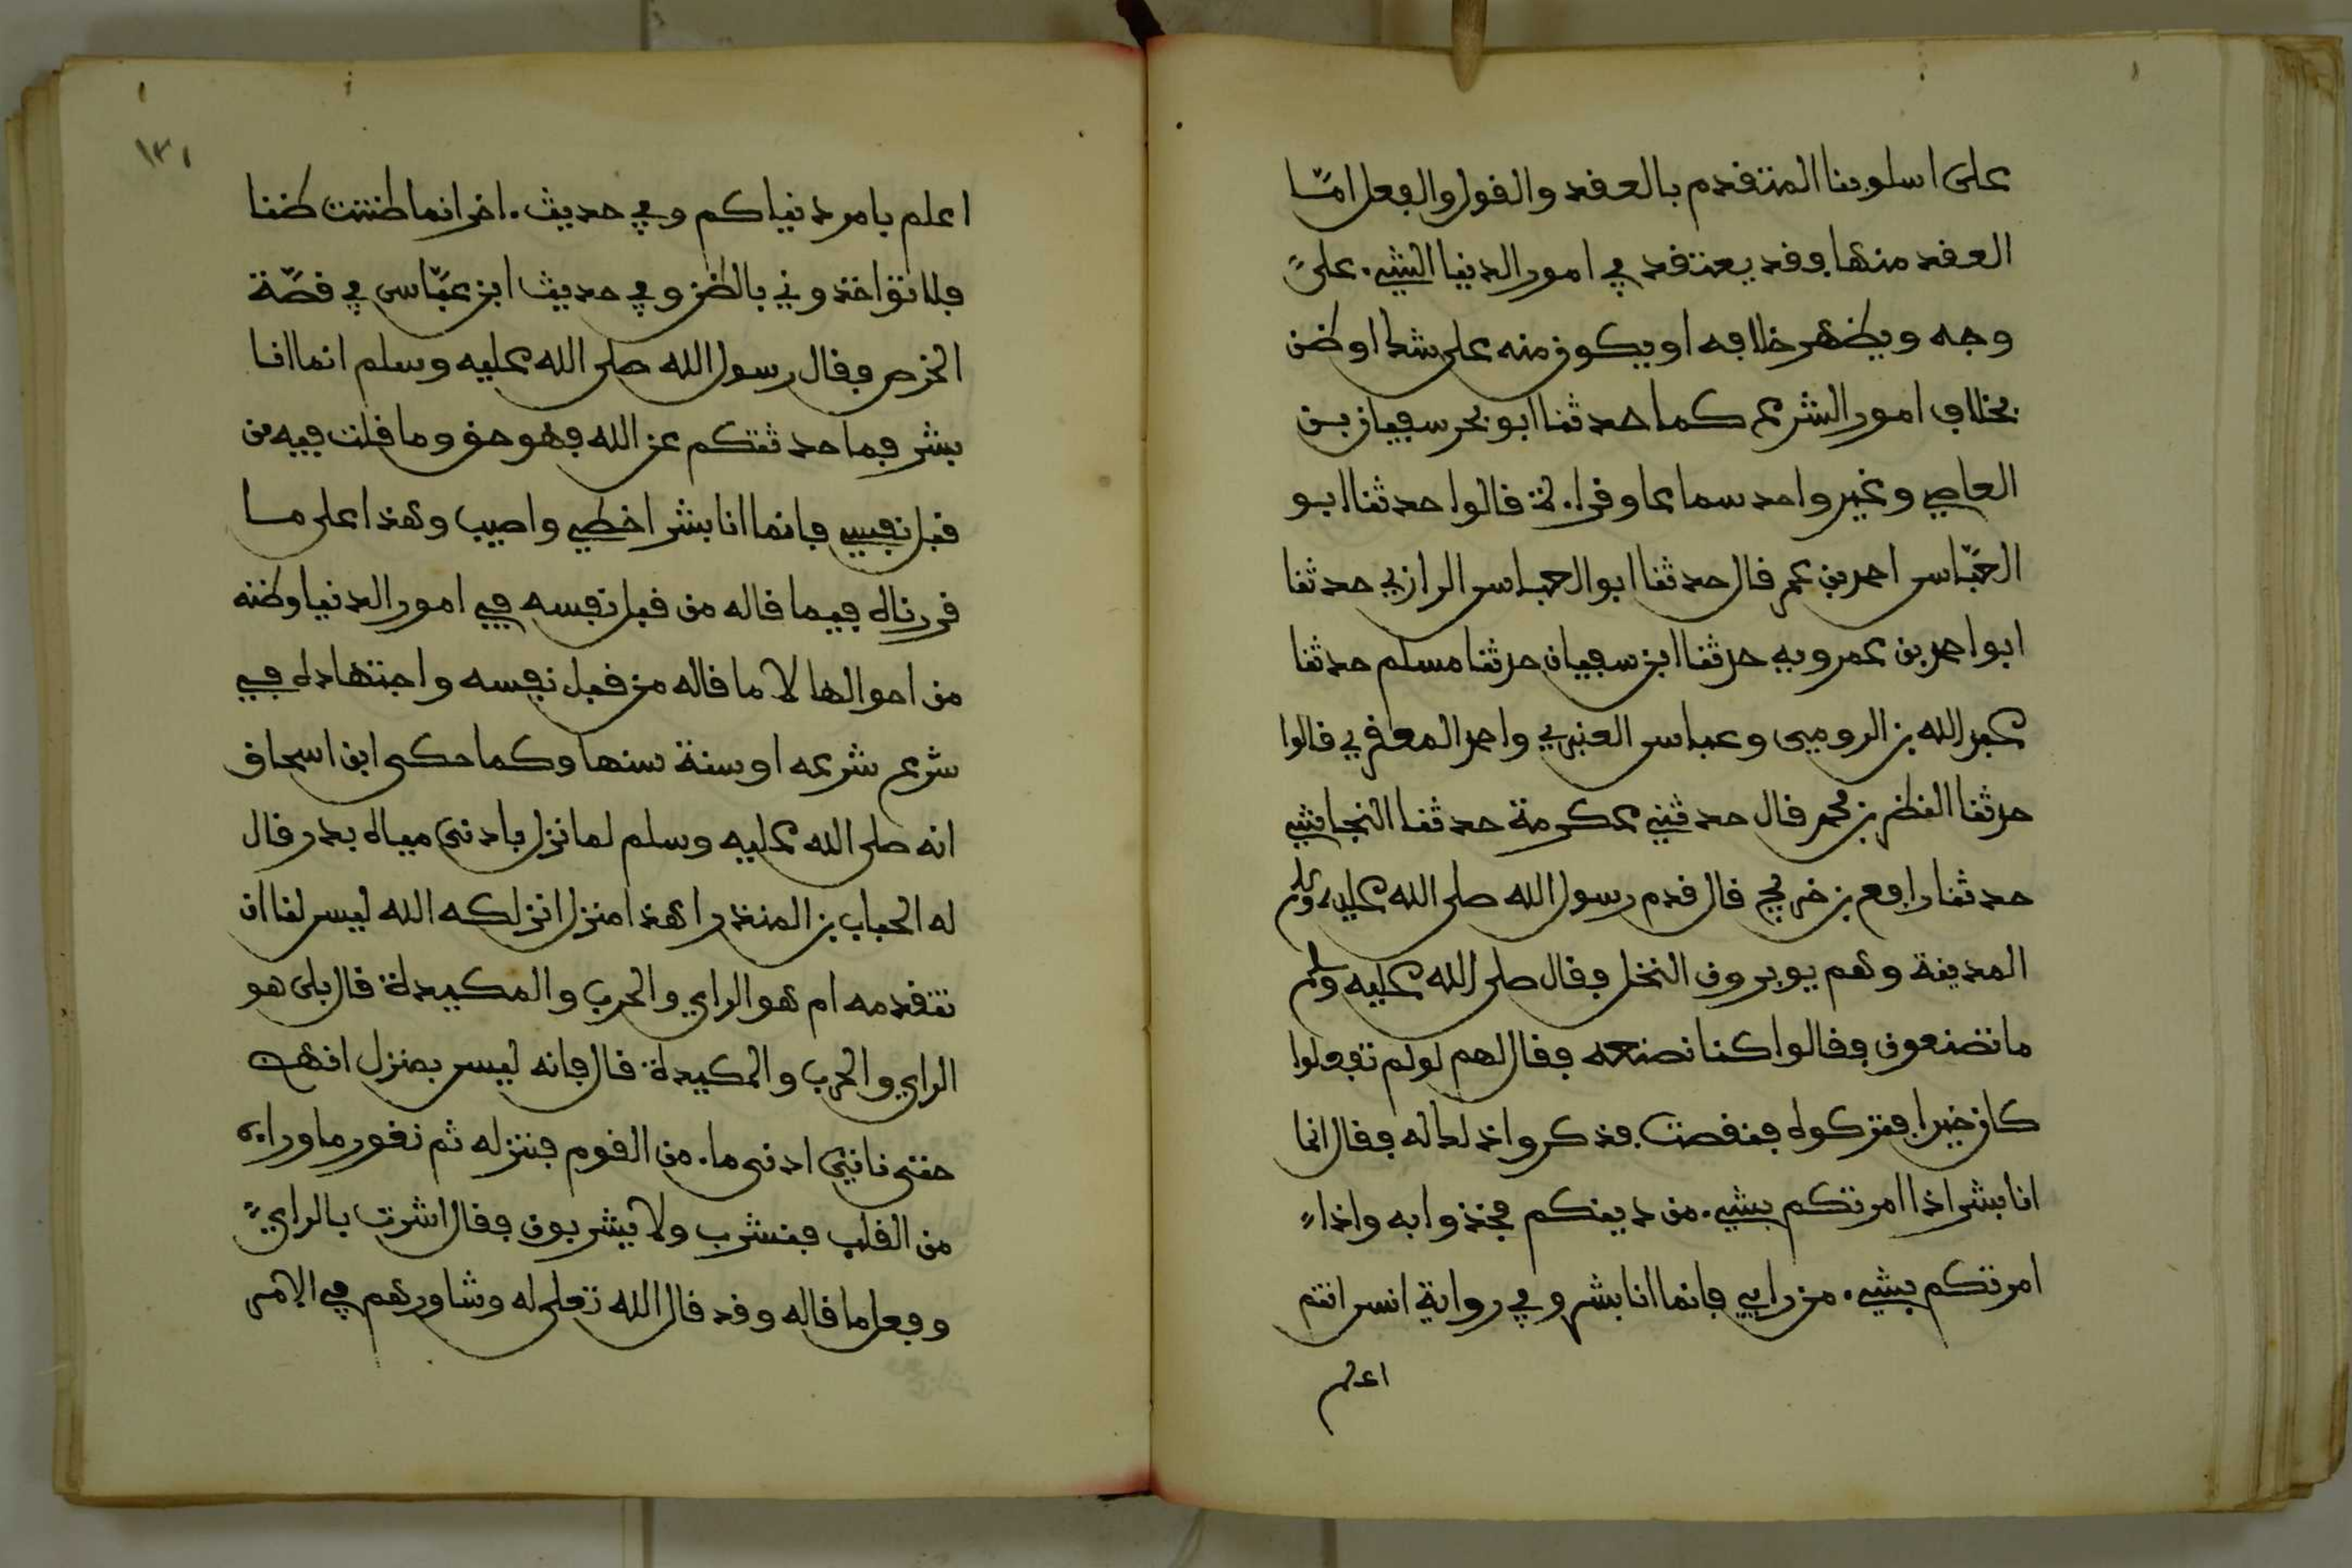 على اسلوبنا المتقدم بالعقد والقول والفعل امّا
العقد منها فقد يعتقد في امور الدنيا الشيء على
وجه ويظهر خلافه او يكون منه على شك او ظن
بخلاف امور الشرع كما حدثنا ابو بحر سفيان بن
العاصي وغير واحد سماعا وقراءة قالوا حدثنا ابو
العبّاس احمد بن عمر قال حدثنا ابو العباس الرازي حدثنا
ابو احمد بن عمرويه حدثنا ابن سفيان حدثنا مسلم حدثنا
عبد الله بن الرومي وعباس العنبري واحمد المعقري قالوا
حدثنا النظر بن محمد قال حدثني عكرمة حدثنا النجاشي
حدثنا رافع بن خديج قال قدم رسول الله صلى الله عليه وسلم
المدينة وهم يوبرون النخل فقال صلى الله عليه وسلم
ما تصنعون فقالوا كنا نصنعه فقال لهم لو لم تفعلوا
كان خيرا فتركوه فنقصت فذكروا ذلك له فقال انما
انا بشر اذا امرتكم بشيء من دينكم فخذوا به واذا
امرتكم بشيء من رايي فانما انا بشر وفي رواية انس انتم
اعلم
١٣١
اعلم بامر دنياكم وفي حديث اخر انما ظننت ظنا
فلا تؤاخذوني بالظن وفي حديث ابن عبّاس في قصّة
الخرص فقال رسول الله صلى الله عليه وسلم انما انا
بشر فما حدثتكم عن الله فهو حق وما قلت فيه من
قبل نفسي فانما انا بشر اخطي واصيب وهذا على ما
قررناه فيما قاله من قبل نفسه في امور الدنيا وظنه
من احوالها لا ما قاله من قبل نفسه واجتهاده في
شرع شرعه او سنة سنها وكما حكى ابن اسحاق
انه صلى الله عليه وسلم لما نزل بادنى مياه بدر قال
له الحباب بن المنذر اهذا منزل انزلكه الله ليس لنا ان
نتقدمه ام هو الراي والحرب والمكيدة قال بلى هو
الراي والحرب والمكيدة قال فانه ليس بمنزل انهض
حتى ناتي ادنى ماء من القوم فننزله ثم نغور ما وراءه
من القلب فنشرب ولا يشربون فقال اشرت بالراي
وفعل ما قاله وقد قال الله تعلى له وشاورهم في الامر